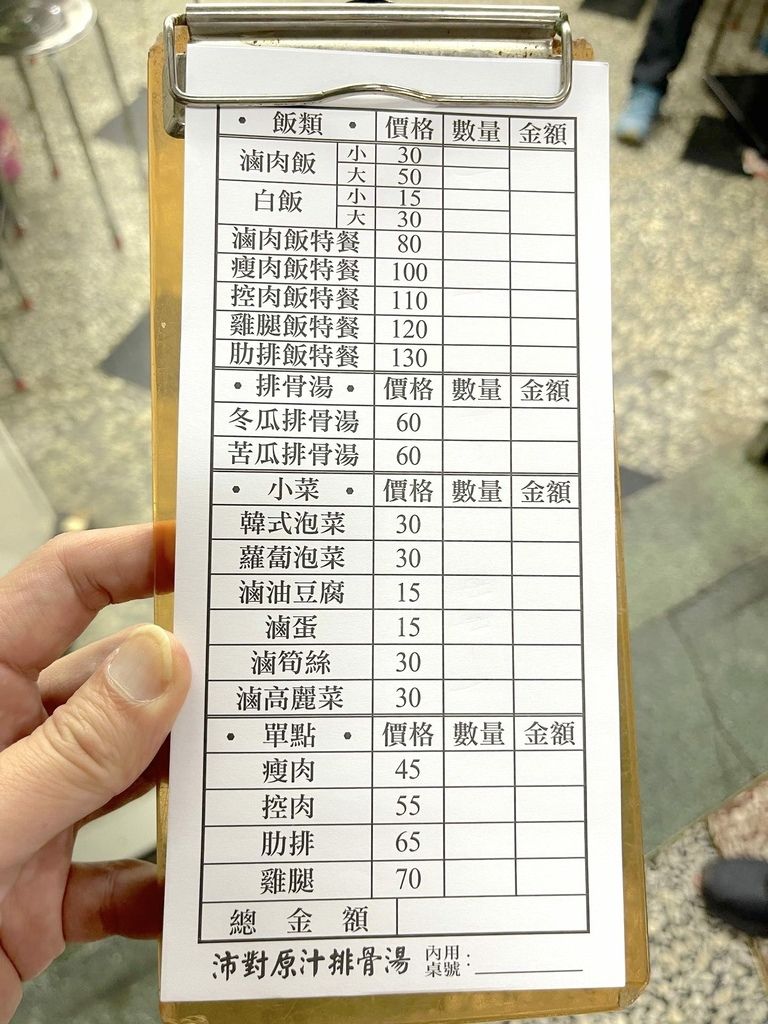 • 飯類 • 價格 數量 金額
滷肉飯 小 30
大 50
白飯 小 15
大 30
滷肉飯特餐 80
瘦肉飯特餐 100
控肉飯特餐 110
雞腿飯特餐 120
肋排飯特餐 130
• 排骨湯 • 價格 數量 金額
冬瓜排骨湯 60
苦瓜排骨湯 60
• 小菜 • 價格 數量 金額
韓式泡菜 30
蘿蔔泡菜 30
滷油豆腐 15
滷蛋 15
滷筍絲 30
滷高麗菜 30
• 單點 • 價格 數量 金額
瘦肉 45
控肉 55
肋排 65
雞腿 70
總金額
沛對原汁排骨湯 內用桌號：